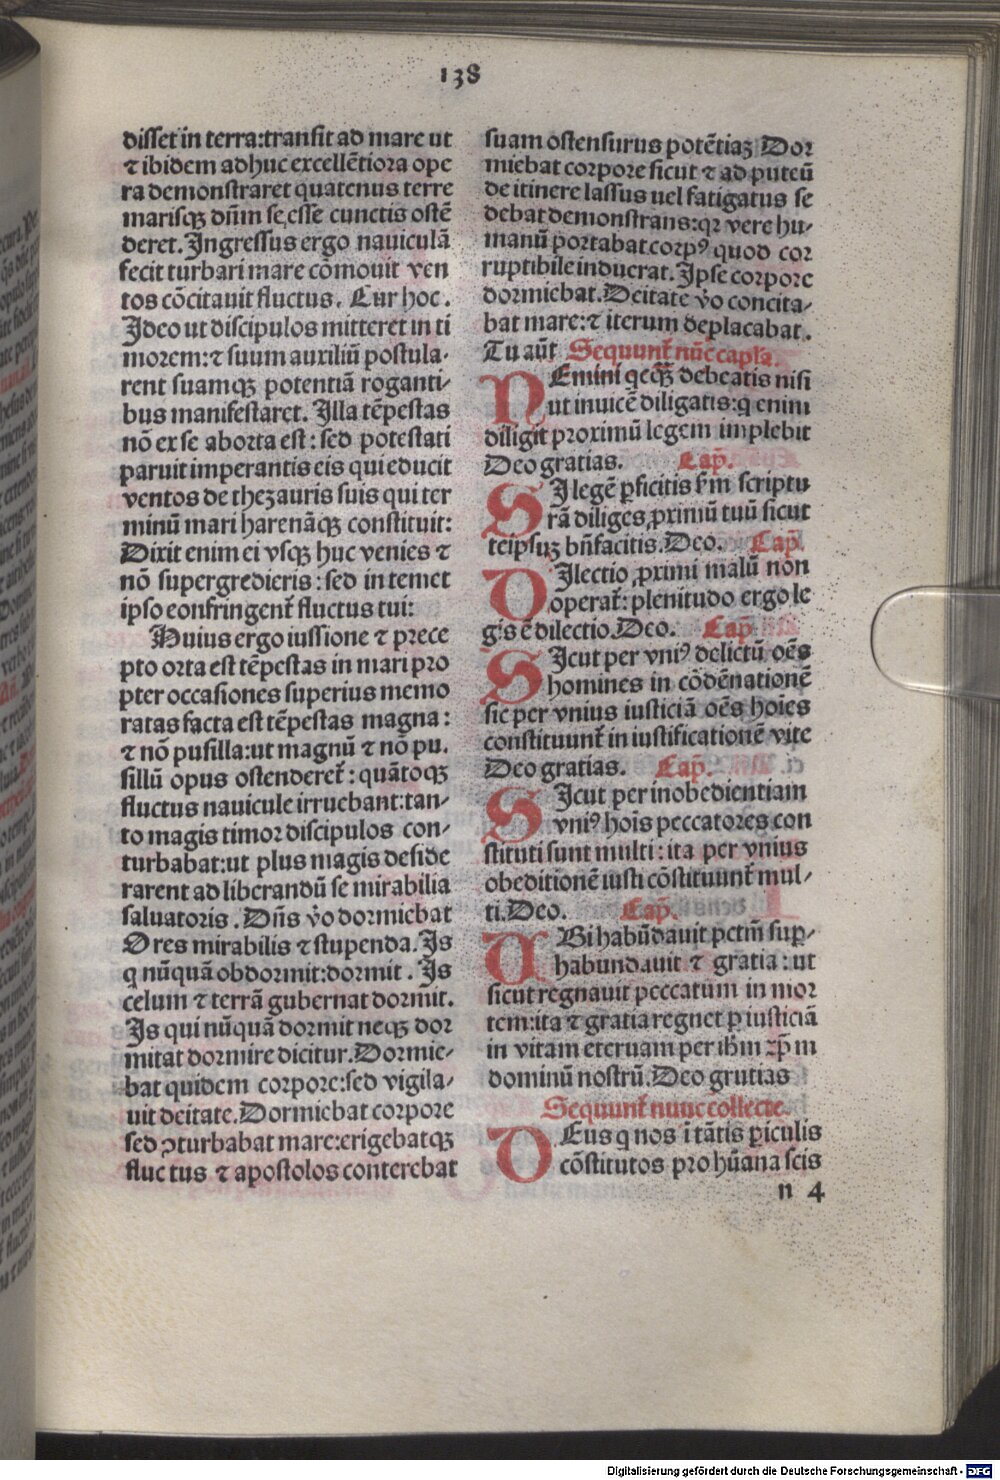 138
disset in terra:transit ad mare ut
⁊ ibidem adhuc excellētiora ope
ra demonstraret quatenus terre
marisqꝫ dn̄m se esse cunctis ostē
deret. Ingressus ergo nauiculā
fecit turbari mare cōmouit ven
tos cōcitauit fluctus. Cur hoc.
Ideo ut discipulos mitteret in ti
morem:⁊ suum auxiliū postula-
rent suamqꝫ potentiā roganti-
bus manifestaret. Illa tēpestas
nō ex se aborta est: sed potestati
paruit imperantis eis qui educit
ventos de thezauris suis qui ter
minū mari harenāqꝫ constituit:
Dixit enim ei vsqꝫ huc venies ⁊
nō supergredieris: sed in temet
ipso confringent̄ fluctus tui:
Huius ergo iussione ⁊ prece
pto orta est tēpestas in mari pro
pter occasiones superius memo
ratas facta est tēpestas magna:
⁊ nō pusilla:ut magnū ⁊ nō pu.
sillū opus ostenderet̄: quātoqꝫ
fluctus nauicule irruebant:tan-
to magis timor discipulos con-
turbabat:ut plus magis deside
rarent ad liberandū se mirabilia
saluatoris. Dn̄s v̄o dormiebat
O res mirabilis ⁊ stupenda. Is
q nūquā obdormit:dormit. Is
celum ⁊ terrā gubernat dormit.
Is qui nūquā dormit neqꝫ dor
mitat dormire dicitur. Dormie-
bat quidem corpore:sed vigila-
uit deitate. Dormiebat corpore
sed ꝯturbabat mare:erigebatqꝫ
fluctus ⁊ apostolos conterebat
suam ostensurus potētiaꝫ Dor
miebat corpore sicut ⁊ ad puteū
de itinere lassus uel fatigatus se
debat demonstrans:qꝛ vere hu-
manū portabat corpꝰ quod cor
ruptibile induerat. Ipse corpore
dormiebat. Deitate v̄o concita-
bat mare:⁊ iterum deplacabat.
Tu aūt Sequunt̄ nūc capl'a.
NEmini qcqꝫ debeatis nisi
ut inuicē diligatis:q enim
diligit proximū legem implebit
Deo gratias. Cap̄.
SI legē ꝑficitis s'm scriptu
rā diliges ꝓximū tuū sicut
teipsuꝫ bn̄facitis. Deo. Cap̄.
DIlectio ꝓximi malū non
operat̄: plenitudo ergo le
gis ē dilectio. Deo. Cap̄
SIcut per vniꝰ delictū oēs
homines in cōdēnationē
sic per vnius iusticiā oēs hoies
constituunt̄ in iustificationē vite
Deo gratias. Cap̄.
SIcut per inobedientiam
vniꝰ hoīs peccatores con
stituti sunt multi: ita per vnius
obeditionē iusti cōstituunt̄ mul-
ti. Deo. Cap̄.
UBi habūdauit pctm̄ suꝑ-
habundauit ⁊ gratia: ut
sicut regnauit peccatum in mor
tem:ita ⁊ gratia regnet ꝑ iusticiā
in vitam eternam per ihm̄ xp̄m
dominū nostrū. Deo gratias
Sequunt̄ nunc collecte.
DEus q nos ī tātis ꝑiculis
cōstitutos pro hūana scis
n 4
Digitalisierung gefördert durch die Deutsche Forschungsgemeinschaft - DFG